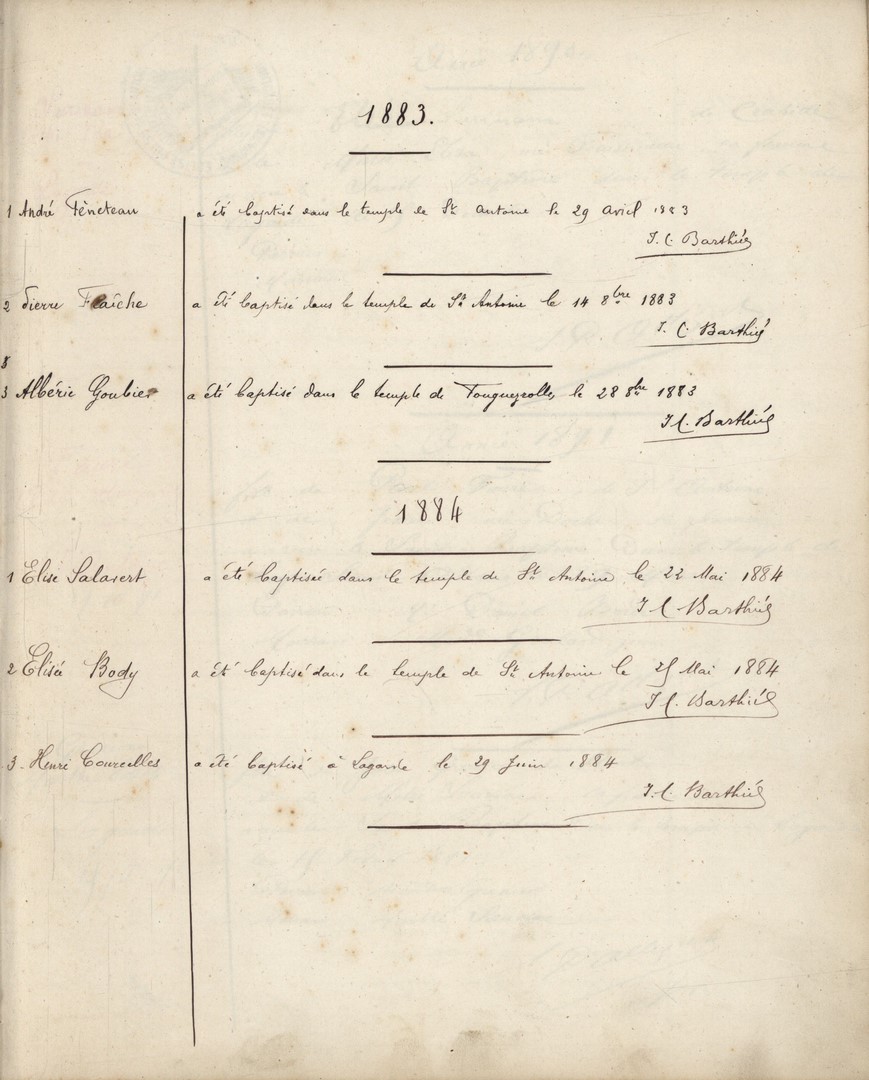 1883.
1 André Fèneteau a été baptisé dans le temple de St Antoine le 29 avril 1883
J. C. Barthié
2 Pierre Flaîche a été baptisé dans le temple de St Antoine le 14 8bre 1883
J. C. Barthié
8
3 Albéric Goubier a été baptisé dans le temple de Fougueyrolles le 28 8bre 1883
J C. Barthié
1884
1 Elise Salavert a été baptisée dans le temple de St Antoine le 22 Mai 1884
J C Barthié
2 Elisée Body a été baptisé dans le temple de St Antoine le 25 Mai 1884
J C. Barthié
3 - Henri Courcelles a été baptisé à Lagarde le 29 Juin 1884
J. C. Barthié